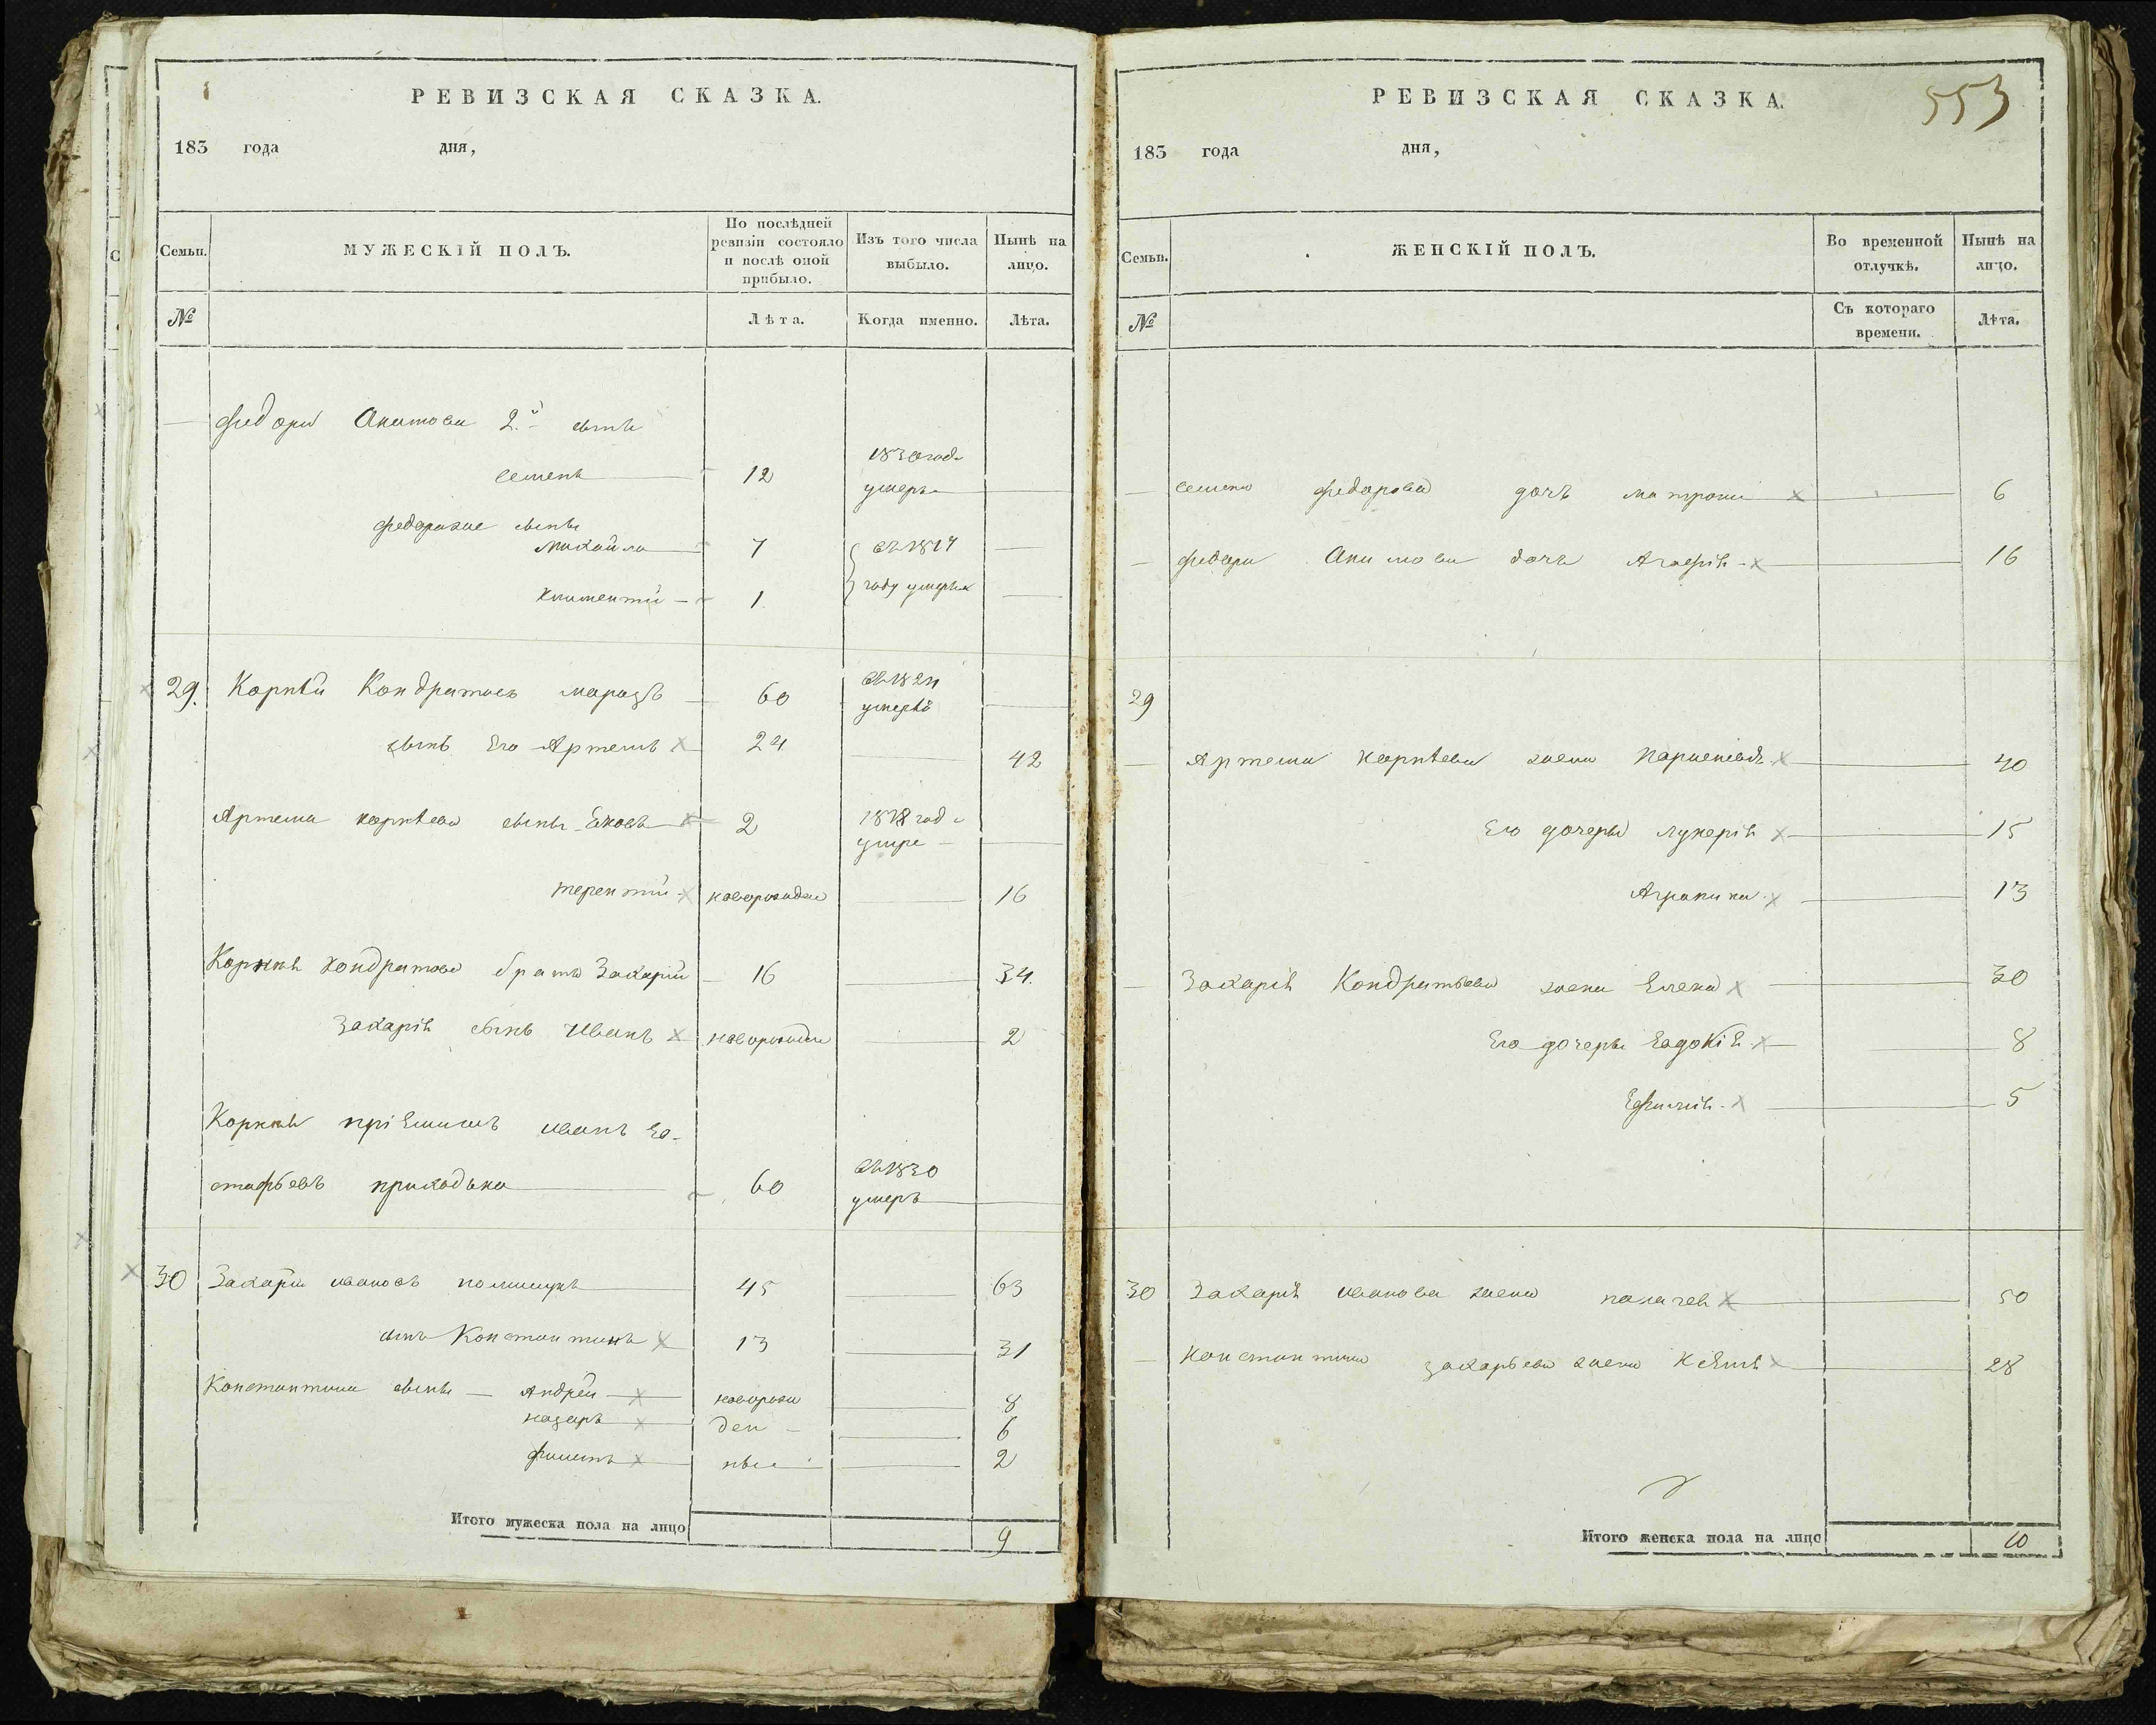 РЕВИЗСКАЯ СКАЗКА.
183 года дня,
Семьи. МУЖЕСКІЙ ПОЛЪ. По послѣдней ревизіи состояло и послѣ оной прибыло. Изъ того числа выбыло. Нынѣ на лицо.
№ Лѣта. Когда именно. Лѣта.
— Федора Акимова 2й сынъ
1830 года
семенъ 12 умеръ
Федоровые сыны
михайло 7 въ 1817
климентій 1 году умерли
29. Корнѣй Кондратьевъ морозъ 60 въ 1824 умеръ
сынъ Его Артемъ 24 — 42
Артема корнѣева сыны Яковъ 2 1828 года умре
терентій новорожден — 16
Корнѣя кондратова братъ Захарій 16 — 34
Захарія сынъ Иванъ новорожден — 2
Корнѣя пріемышъ иванъ Ев-
стафьевъ приходька 60 въ 1830 умеръ
30 Захарій ивановъ 45 — 63
сынъ Константинъ 13 — 31
Константина сыны — Андрей новорож — 8
назаръ ден — 6
филипъ ные — 2
Итого мужеска пола на лицо 9
РЕВИЗСКАЯ СКАЗКА. 553
183 года дня,
Семьи. ЖЕНСКІЙ ПОЛЪ. Во временной отлучкѣ. Нынѣ на лицо.
№ Съ котораго времени. Лѣта.
— семена федорова дочь матрона — 6
— федора Акимова дочь Агафія — 16
29
— Артема корнѣева жена — 40
Его дочери лукерія — 15
Агрипина — 13
— Захарія Кондратьева жена Елена — 30
Его дочери Евдокія — 8
Ефимія — 5
30 Захарія иванова жена палагея — 50
— Константина захарьева жена — 28
Итого женска пола на лицо 10